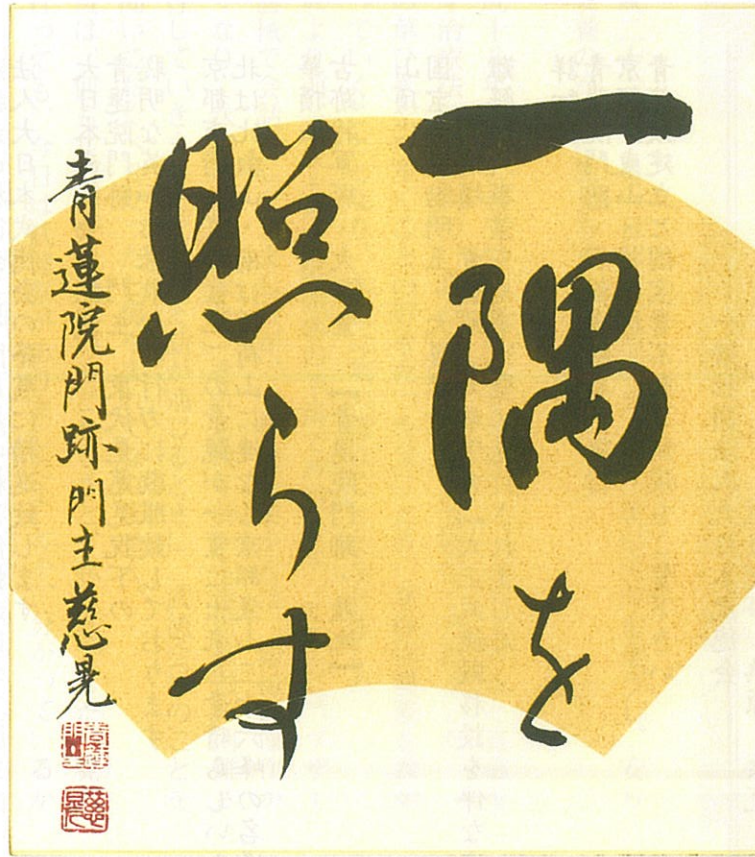 一隅を
照らす
青蓮院門跡門主慈晃